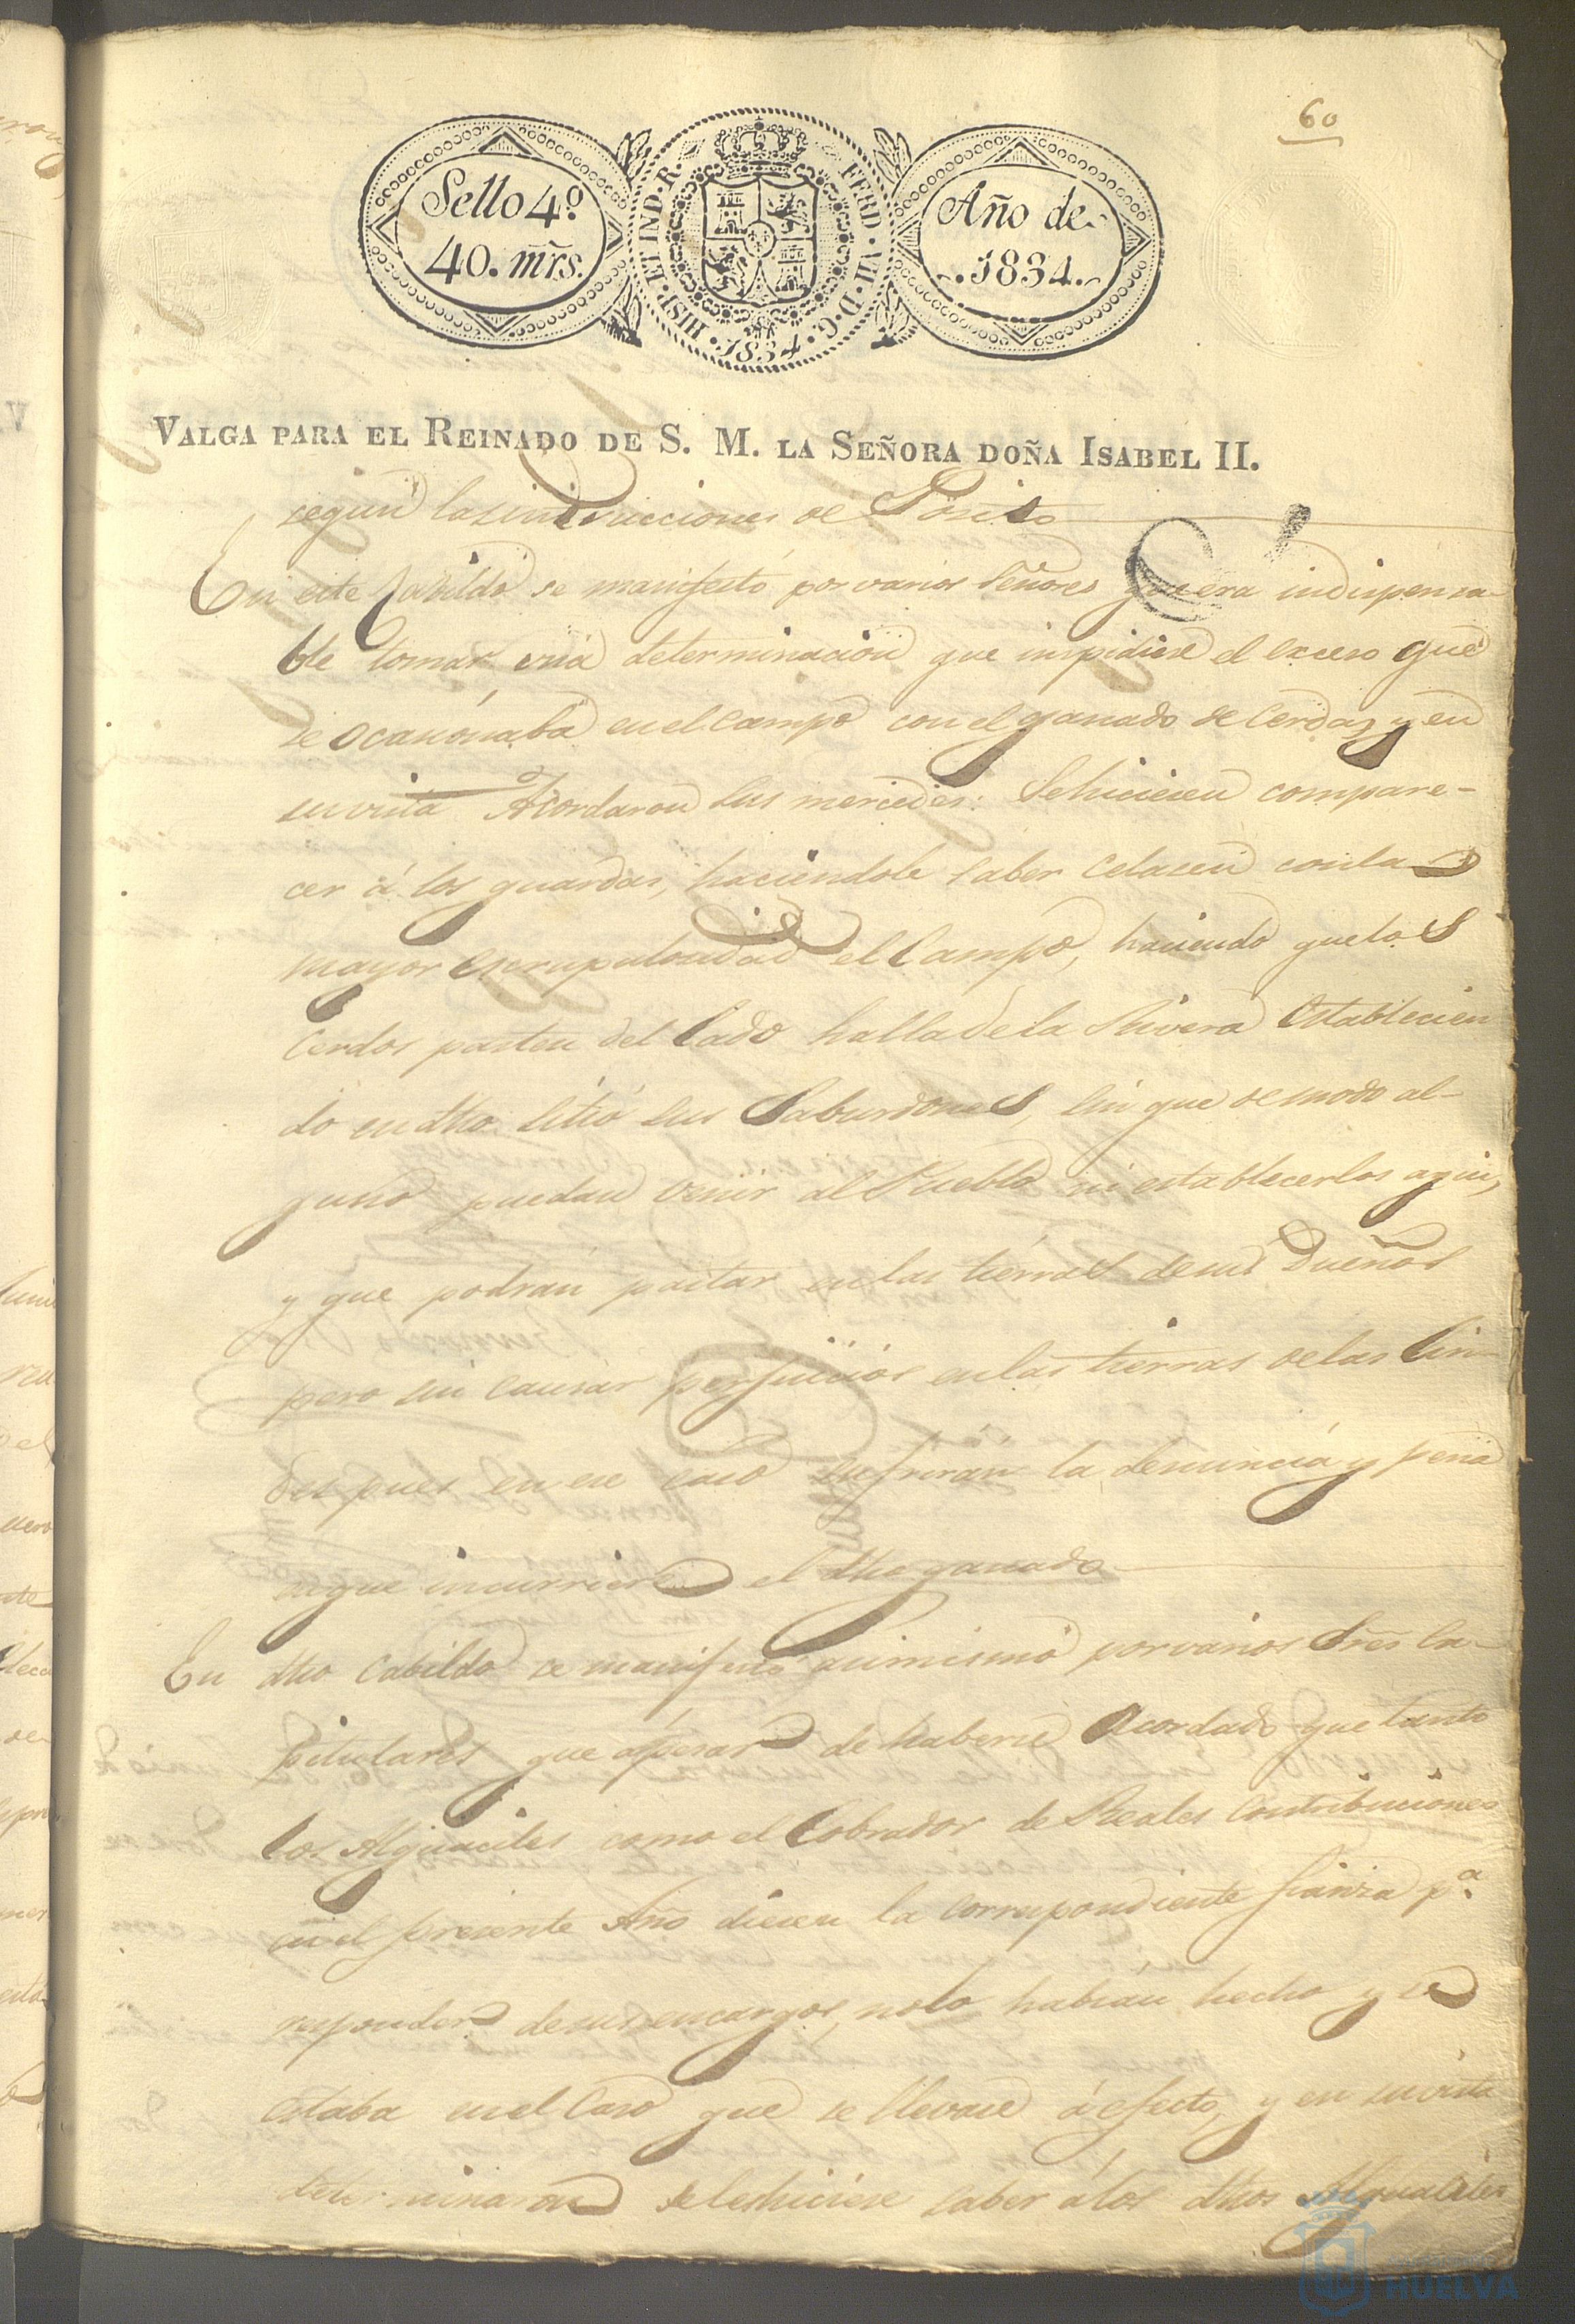 60
Sello 4º
40. mrs.
HISP. ET IND. R. FERD. VII. D. G. 1834.
Año de
1834.
VALGA PARA EL REINADO DE S. M. LA SEÑORA DOÑA ISABEL II.
segun las instrucciones de Posito
En este Cabildo se manifestó por varios Señores que era indispensa-
ble tomar una determinacion que impidiese el exceso que
se ocacionaba en el campo con el ganado de Cerda, y en
su vista Acordaron sus mercedes: Se hiciesen compare-
cer á los guardas, haciendole saber celasen con la
mayor escrupulosidad el Campo, haciendo que los
Cerdos pasten del lado halla de la Rivera Establecien
do en dho sitio sus Saburdones, sin que de modo al-
guno puedan venir al Pueblo ni establecerlos aqui,
y que podran pastar en las tierras de sus Dueños
pero sin causar perjuicios en las tierras de las lin-
des pues en ese caso sufrirán la denuncia y pena
a que incurriere el dho ganado
En dho Cabildo se manifestó asimismo por varios Sres Ca-
pitulares que apesar de haberse Acordado que tanto
los Alguaciles como el Cobrador de Reales Contribuciones
en el presente Año diesen la correspondiente fianza pª
responder de sus encargos, no lo habian hecho y se
estaba en el Caso que se llevase á efecto, y en su vista
determinaron se les hiciese saber á los dhos Alguaciles
HUELVA